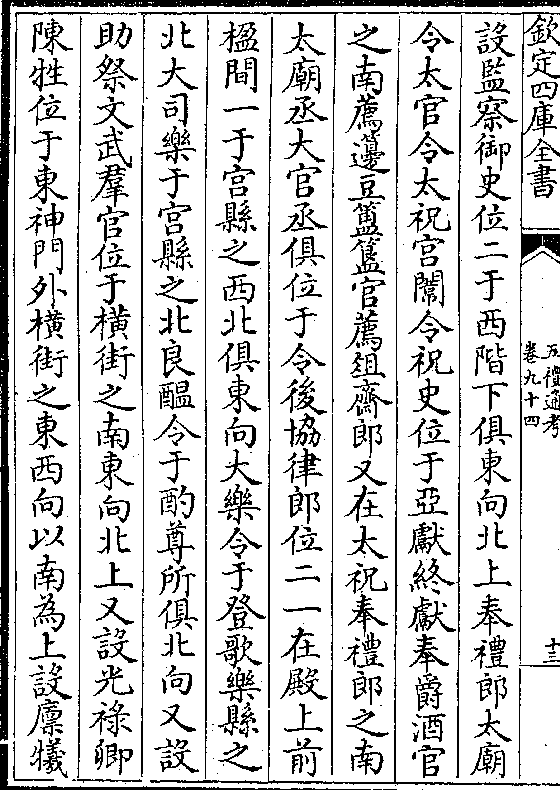 欽定四庫全書
五禮通考
卷九十四
十三
設監察御史位二于西階下俱東向北上奉禮郎太廟
令太官令太祝宮闈令祝史位于亞獻終獻奉爵酒官
之南薦籩豆簠簋官薦俎齋郎又在太祝奉禮郎之南
太廟丞大官丞俱位于令後協律郎位二一在殿上前
楹間一于宮縣之西北俱東向大樂令于登歌樂縣之
北大司樂于宮縣之北良醖令于酌尊所俱北向又設
助祭文武羣官位于橫街之南東向北上又設光祿卿
陳牲位于東神門外橫街之東西向以南為上設廩犧